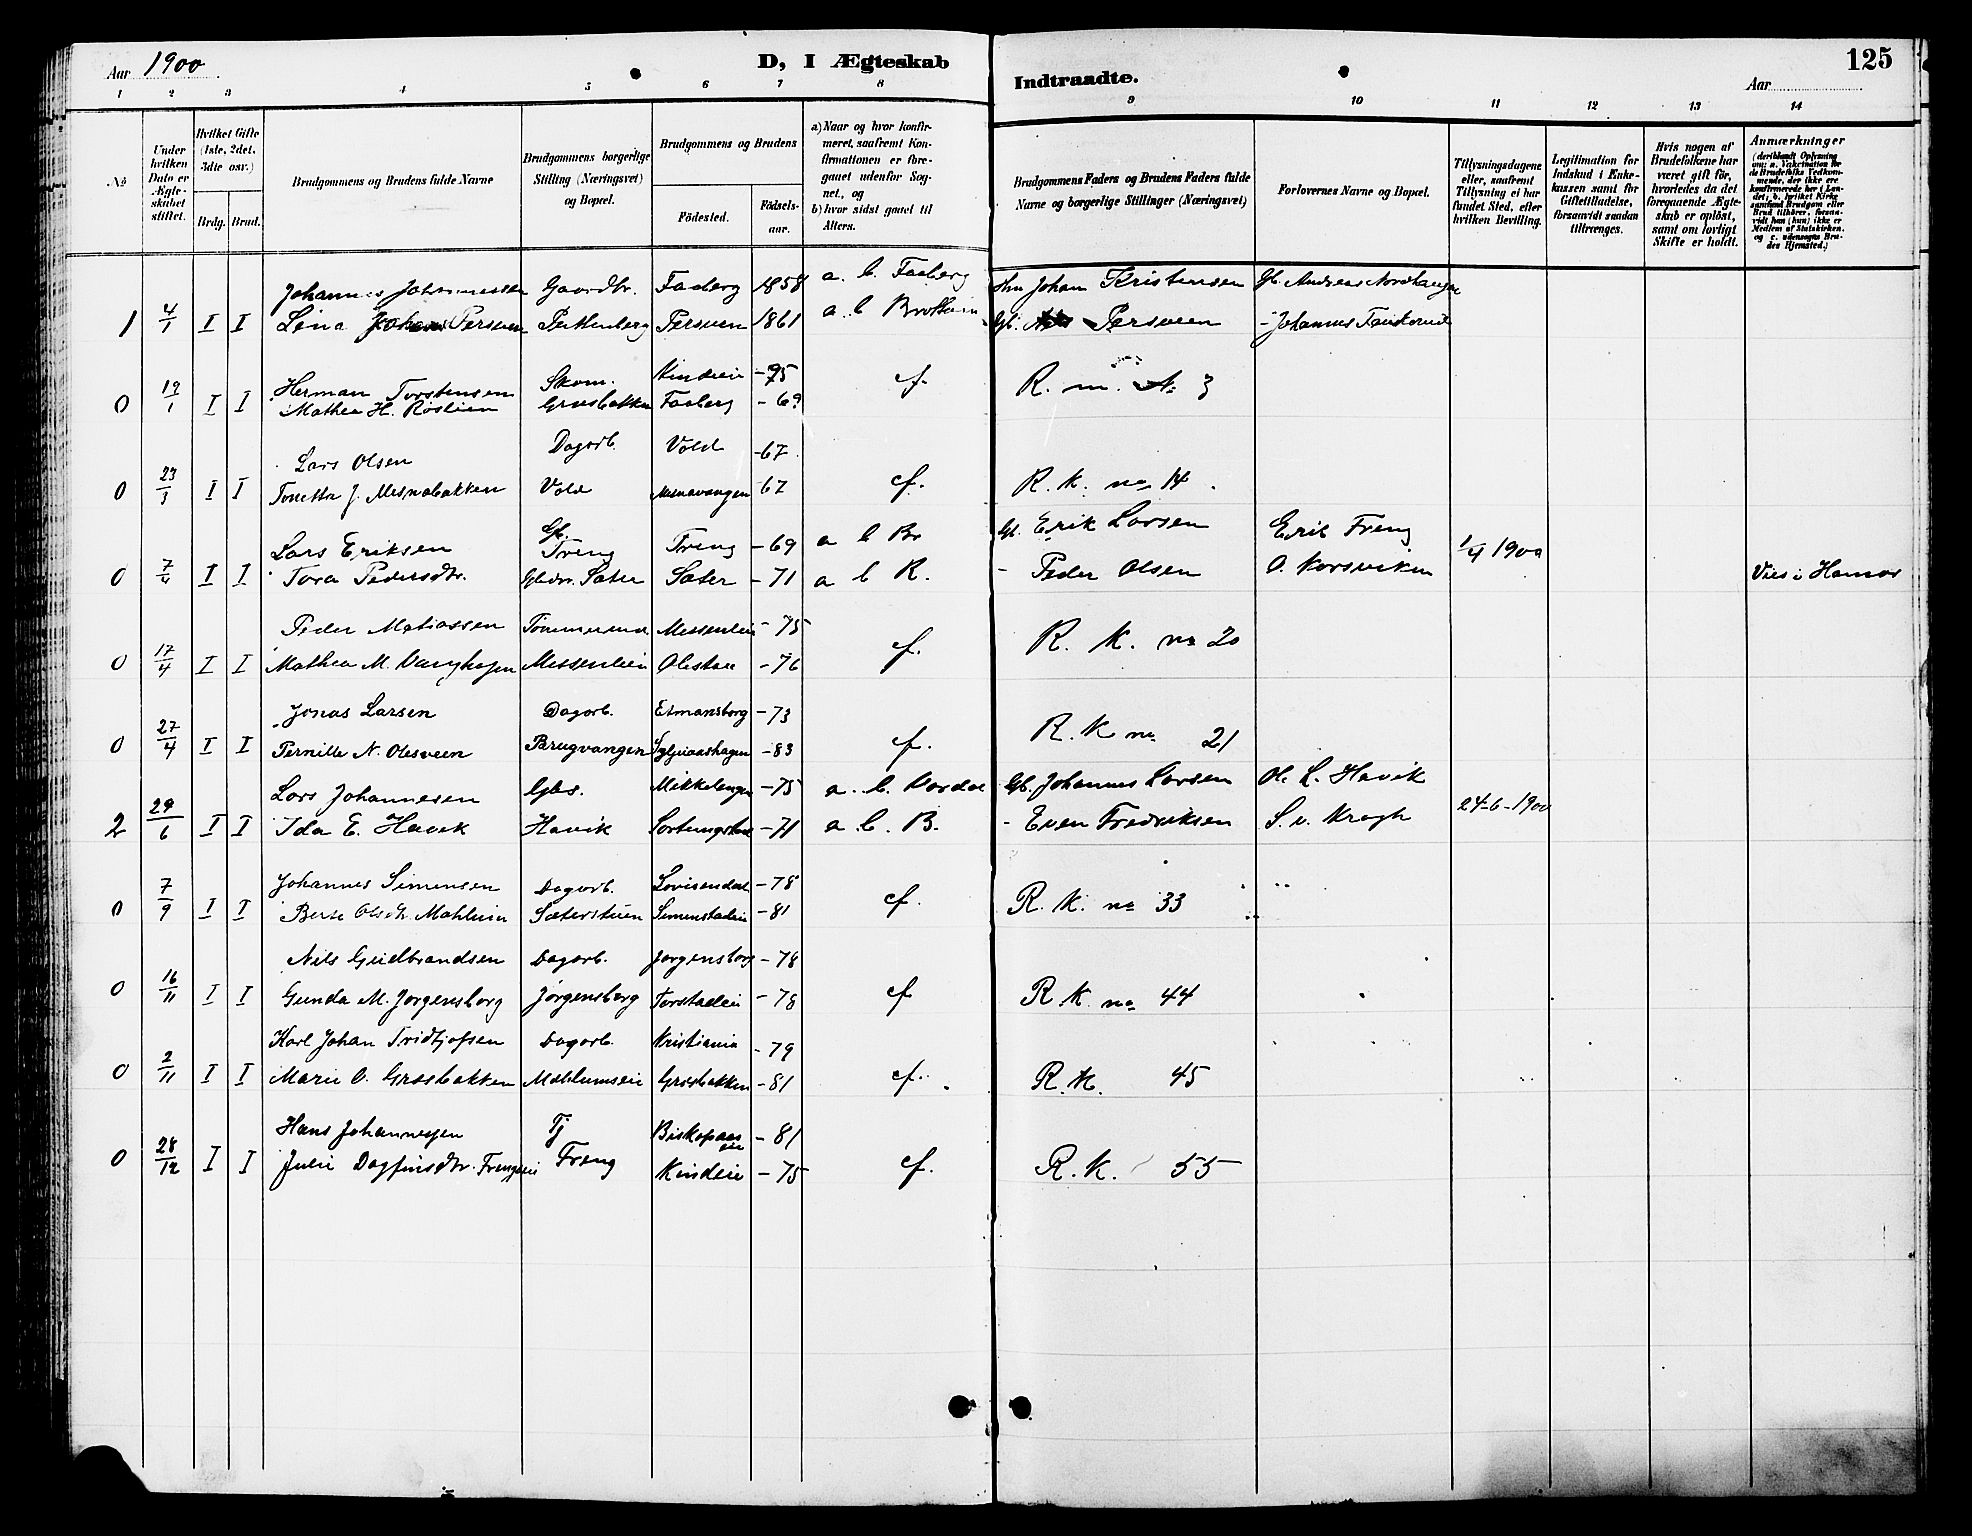 Aar 1900
D, I Ægteskab
Indtraadte.
Aar
125
1 2 3 4 5 6 7 8
9 10 11 12 13 14
No
Under hvilken Dato er Ægteskabet stiftet.
Hvilket Gifte (1ste, 2det, 3die osv.)
Brdg. Brud.
Brudgommens og Brudens fulde Navne
Brudgommens borgerlige Stilling (Næringsvei) og Bopæl.
Brudgommens og Brudens
Födested.
Födselsaar.
a) Naar og hvor konfirmeret, saafremt Konfirmationen er foregaaet udenfor Sognet, og
b) hvor sidst gaaet til Alters.
Brudgommens Faders og Brudens Faders fulde Navne og borgerlige Stillinger (Næringsvei)
Forlovernes Navne og Bopæl.
Tillysningsdagene eller, saafremt Tillysning ei har fundet Sted, efter hvilken Bevilling.
Legitimation for Indskud i Enkekassen samt for Giftetilladelse, forsaavidt saadan tiltrænges.
Hvis nogen af Brudefolkene har været gift før, hvorledes da det foregaaende Ægteskab er opløst, samt om lovligt Skifte er holdt.
Anmærkninger
Johannes Johannessen Gaardbr. Faaberg 1858 a. b. Faaberg Johan Kristensen Gb. Andreas
1 4/1 I I Lina Persveen Persveen 1861 a. b Gb. Persveen - Johannes
Herman Torstensen Skom. -75 cf. R. no. 3
0 19/1 I I Mathea H. Røslien Græsbakken Faaberg -69
Lars Olsen Dagarb. Vold -67
0 23/3 I I J. Mesnabakken Vold Mesnavangen 67 cf. R. K. no 14.
Lars Eriksen Gb. Freng Freng -69 a b Br Gb. Erik Larsen Erik Freng 1/4 1900
0 7/4 I I Tora Pedersdtr. Gbdr. Sæter Sæter -71 a b R. - Peder Olsen O. Korsviken Vies i Hamar
Peder Matiassen Messenleie -75
0 17/4 I I Mathea M. Messenleie -76 cf. R. K. no 20
Jonas Larsen Dagarb. Etmansborg -73
0 27/4 I I Pernille N. Olesveen Brugvangen -83 cf. R. K no 21
Lars Johannesen Gbs. Mikkelengen -75 a. b. Vardal Gb. Johannes Larsen Ol. L. Havik 24-6-1900
2 29/6 I I Ida E. Havik Havik -71 a. b. B. - Even Fredriksen S. v. Krogh
Johannes Simensen Dagarb. Lovisendal -78
0 7/9 I I Berte Olsdtr. Sæterstuen Simenstadeie -81 cf. R. K. no 33
Nils Gudbrandsen Dagarb. Jørgensborg -78
0 16/11 I I Gunda M. Jørgensborg Jørgensborg Torstadeie -78 cf R K. no 44
Karl Johan Fridtjofsen Dagarb. Kristiania -79
0 2/11 I I Marie O. Græsbakken Mæhlumseie Græsbakken -81 cf. R. K. 45
Hans Johannesen Tj Biskopaas -81
0 28/12 I I Julie Dagfinsdtr. Frengeie Freng Kindeie -75 cf. R. K. 55